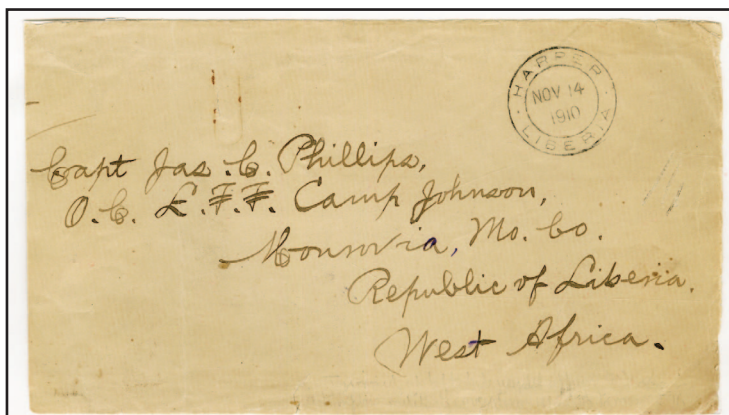 HARPER
NOV 14
1910
LIBERIA
Capt Jas. C. Phillips,
O.C. L.F.F. Camp Johnson,
Monrovia, Mo. Co.
Republic of Liberia.
West Africa.